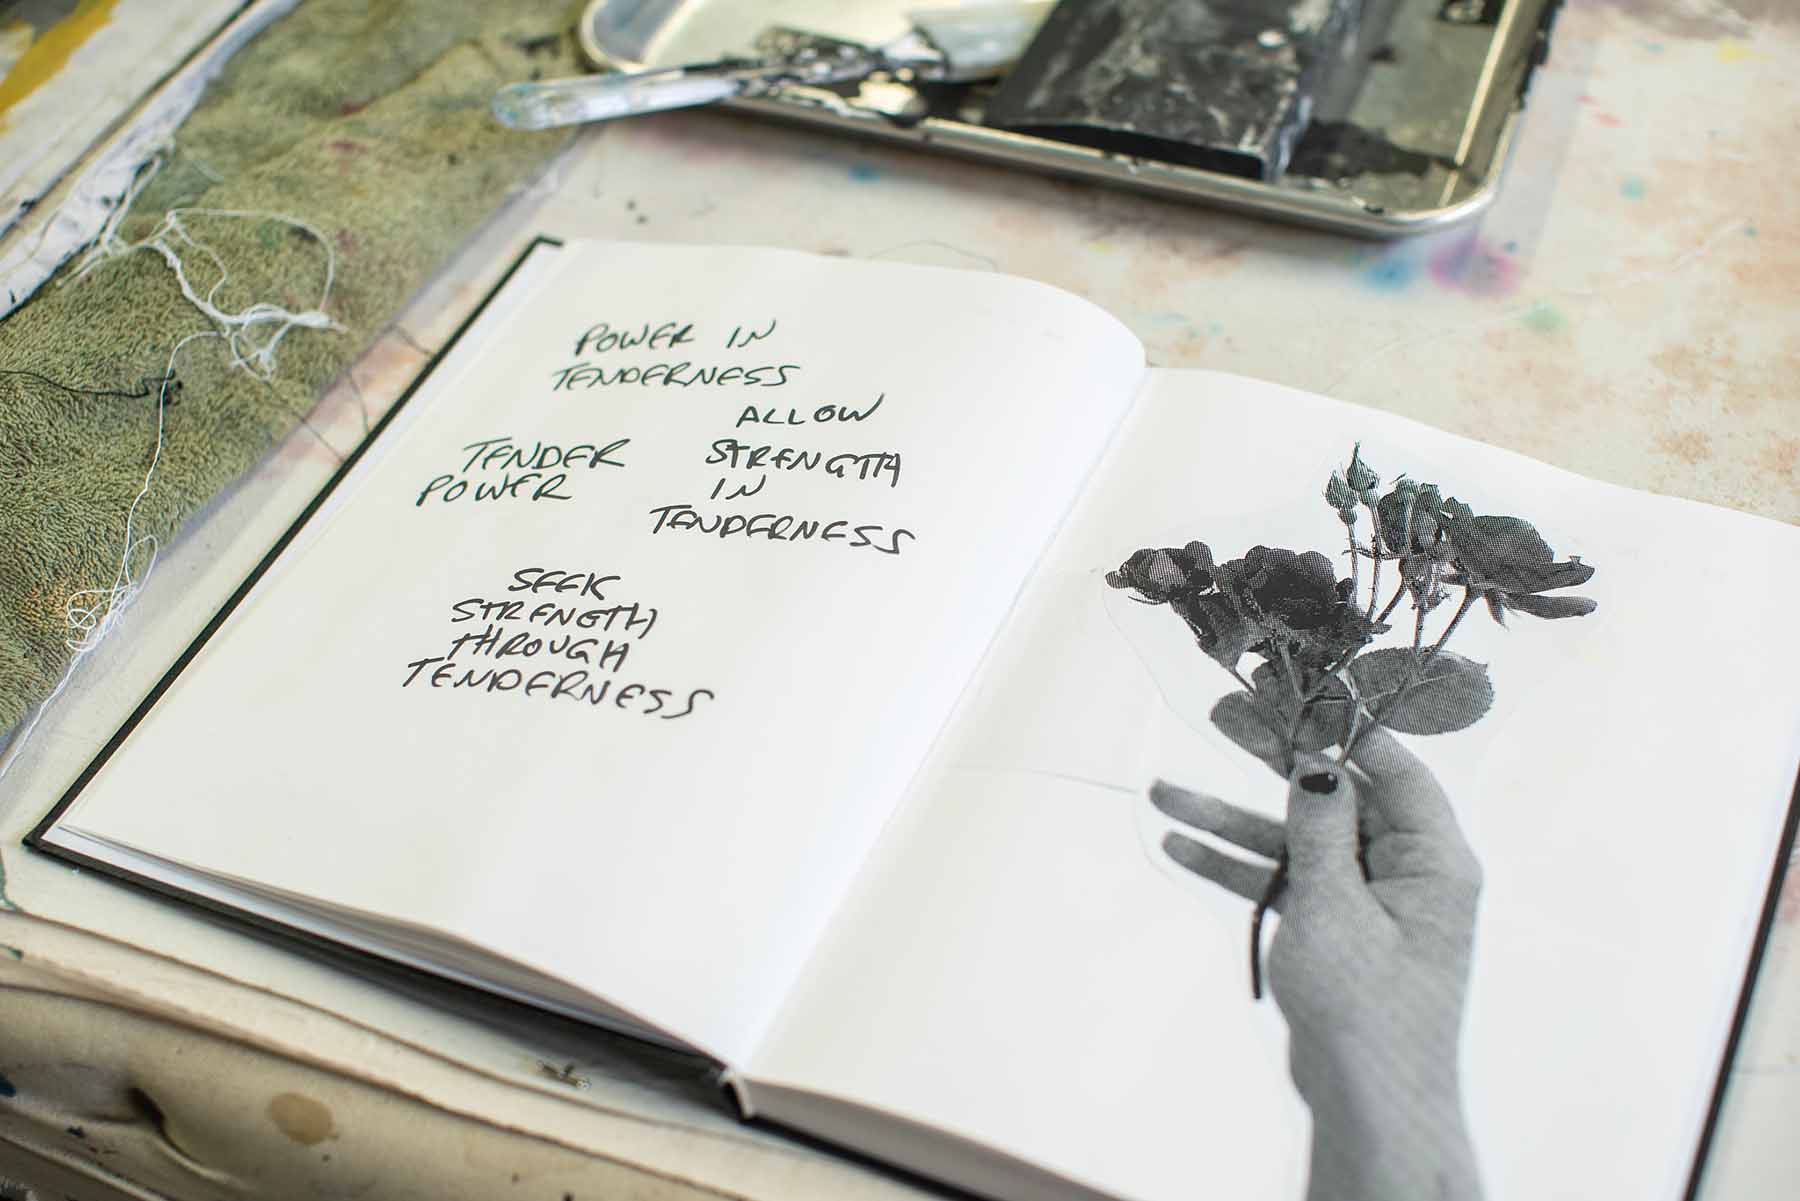 POWER IN
TENDERNESS
TENDER
POWER
ALLOW
STRENGTH
IN
TENDERNESS
SEEK
STRENGTH
THROUGH
TENDERNESS